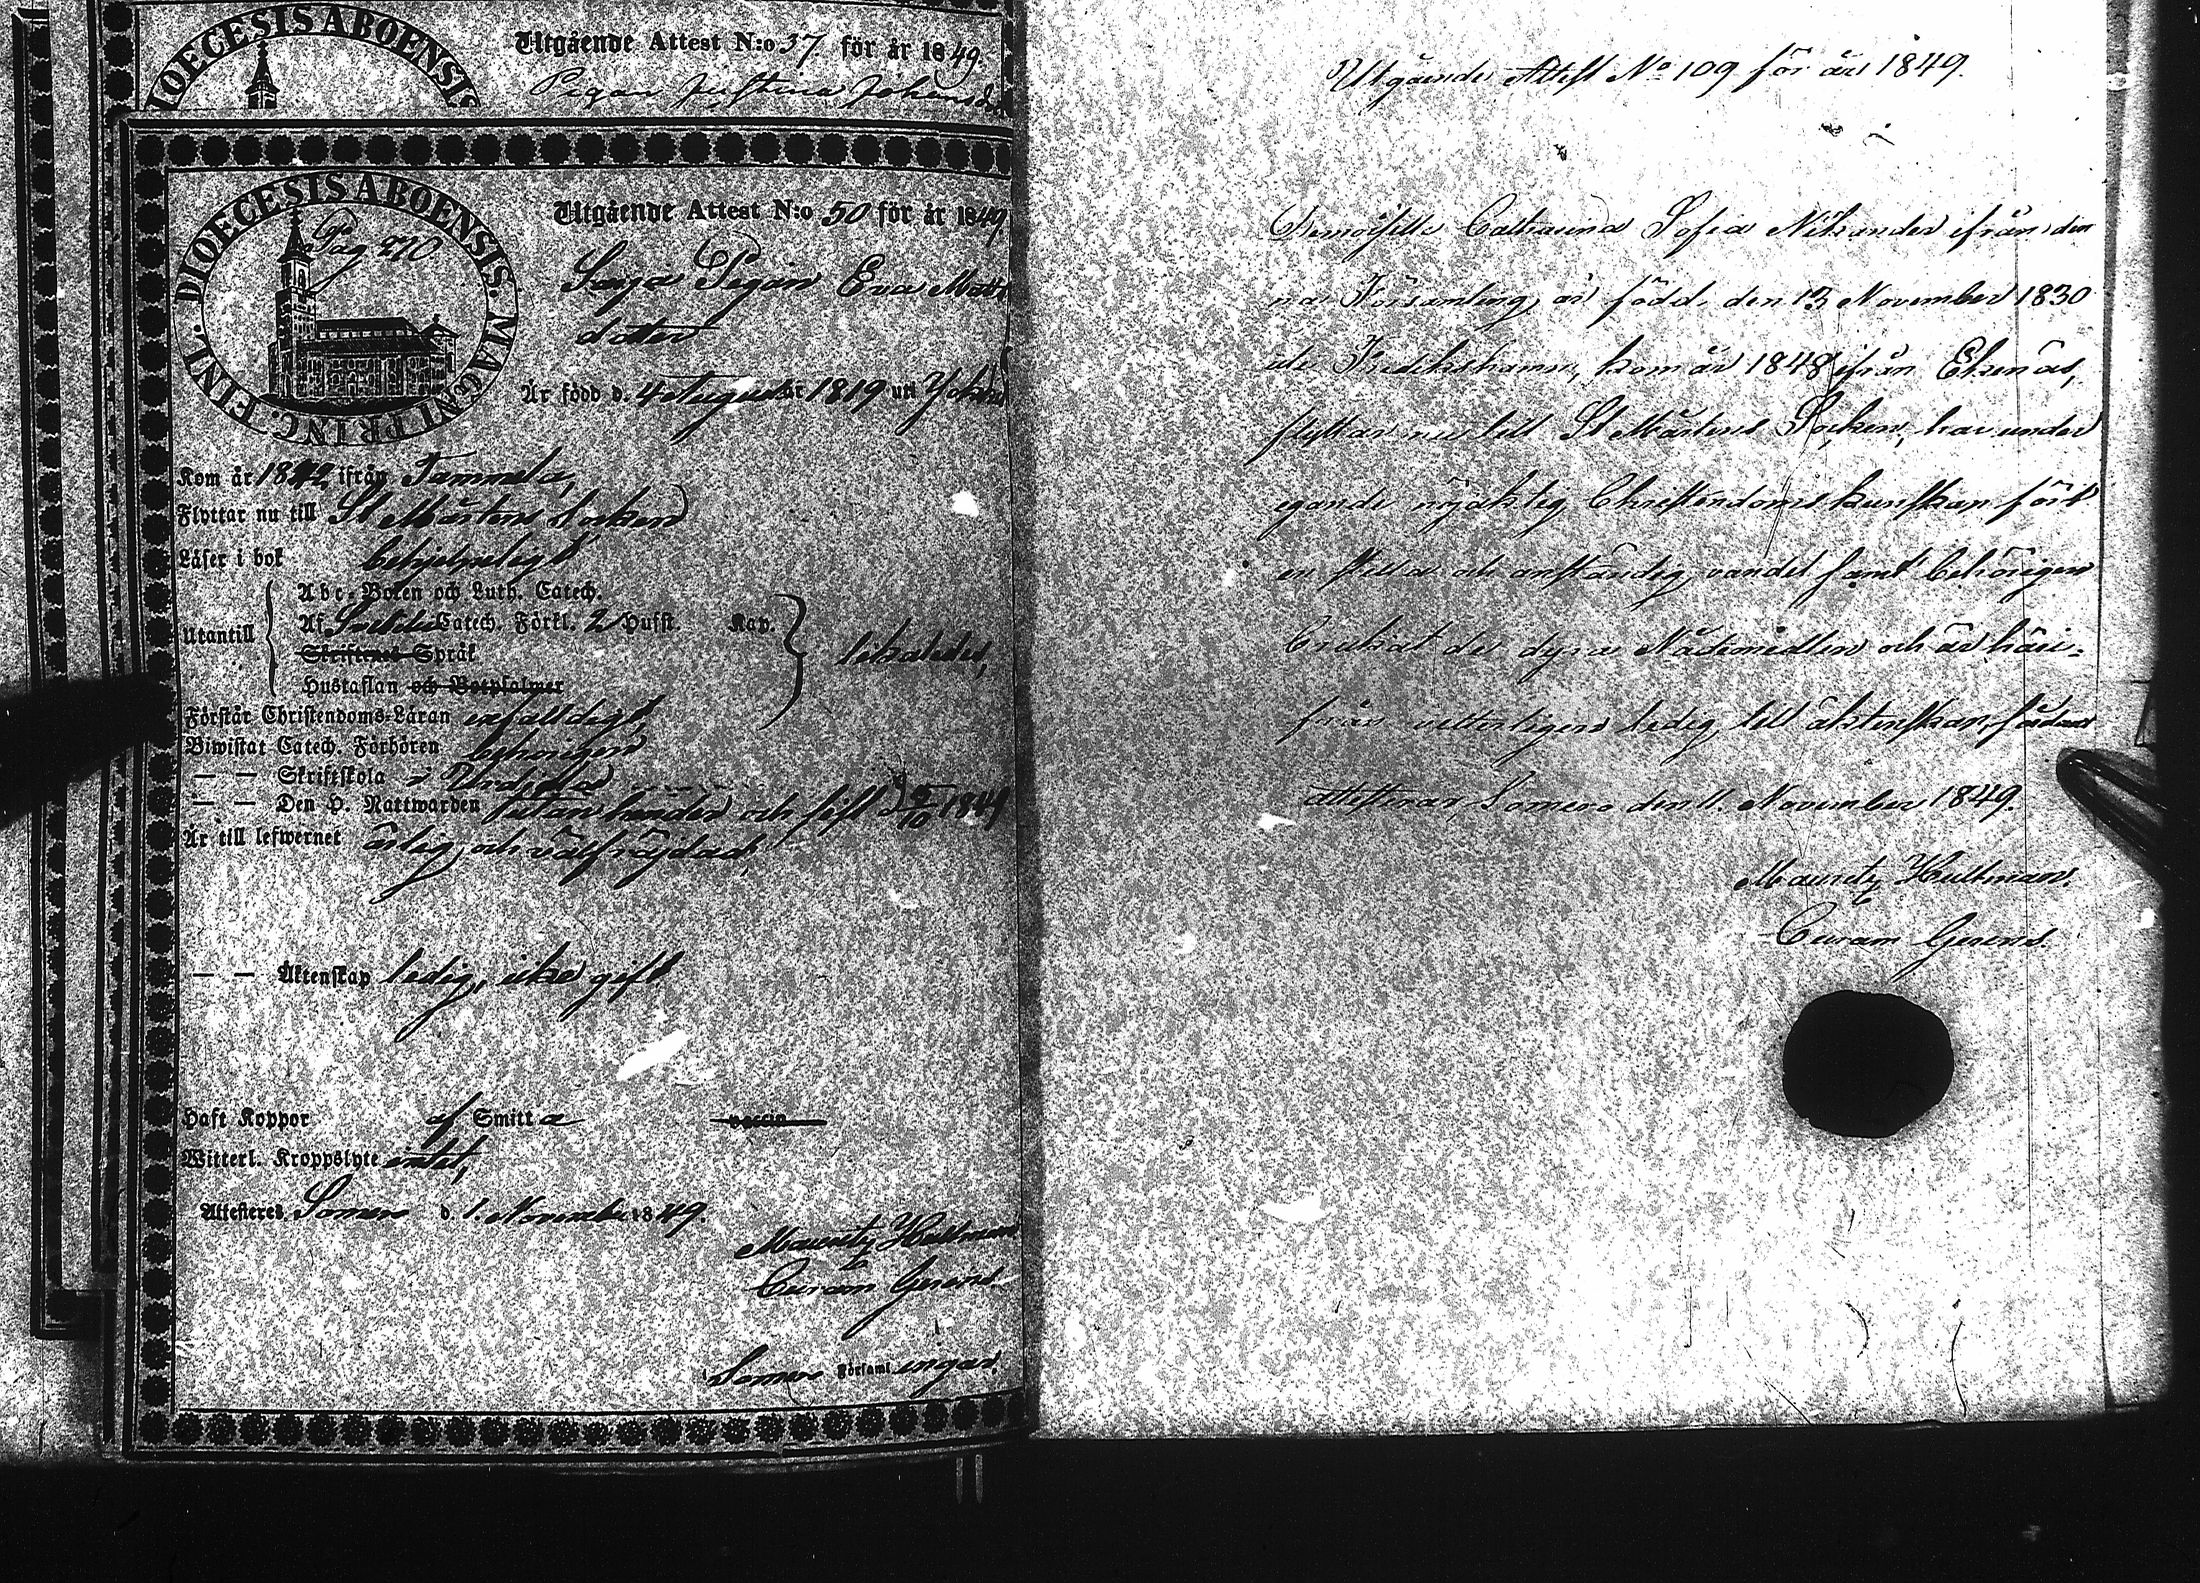 DIOECESIS ABOENSIS
Utgående Attest N:o 37 för år 1849.
Pigan Justina Johansd
DIOECESIS ABOENSIS. MAGNI PRINC. FINL.
Pag 270
Utgående Attest N:o 50 för år 1849
Pigan Eva Matts
dotter
Är född d. 4 Augusti 1819 uti
Kom år 1842 ifrån Tammela,
Flyttar nu till St Mårtens Socken
Läser i bok behjelpeligt
Utantill
Abc-Boken och Luth. Catech.
Af Catech. Förkl. 2 Hufst. Kap.
Skriftenes Språk
Hustaflan och Botpsalmer
likaledes,
Förstår Christendoms-Läran enfalldigt,
Biwistat Catech. Förhören behörigen
— — Skriftskola i Urdiala
— — Den H. Nattwarden och sist d 1849
Är till lefwernet ärlig och välfräjdad,
— — Äktenskap ledig, icke gift
Haft Koppor af Smitta vaccin
Witterl. Kroppslyte intet,
Attesteres Somero d. 1. November 1849.
Mauritz Hultman
Curam Gerens
Somero Församlingar.
Utgående Attest No 109 för år 1849.
Demoiselle Catharina Sofia Nikander ifrån den
na Församling, är född den 13 November 1830
uti Fredrikshamn, kom år 1848 ifrån Ekenäs,
flyttar nu till St Mårtens Socken, har under
egande nöjaktig Christendoms kunskap fört
en stilla och anständig vandel samt behörigen
brukat de dyra Nådemedlen och är häri-
från vetterligen ledig till äktenskap, sådant
attesterar, Somero den 11 November 1849.
Mauritz Hultman.
Curam Gerens.